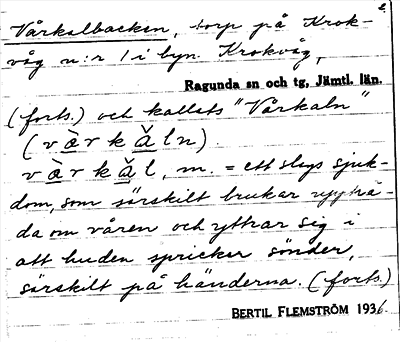 2.
Vårkalbacken, torp på Krok-
våg n:r 1 i byn Krokvåg,
Ragunda sn och tg, Jämtl. län.
(forts.) och kallats "Vårkaln"
(vàrkǎln).
vàrkǎl, m. = ett slags sjuk-
dom, som särskilt brukar uppträ-
da om våren och yttrar sig i
att huden spricker sönder,
särskilt på händerna. (forts.)
BERTIL FLEMSTRÖM 1936.